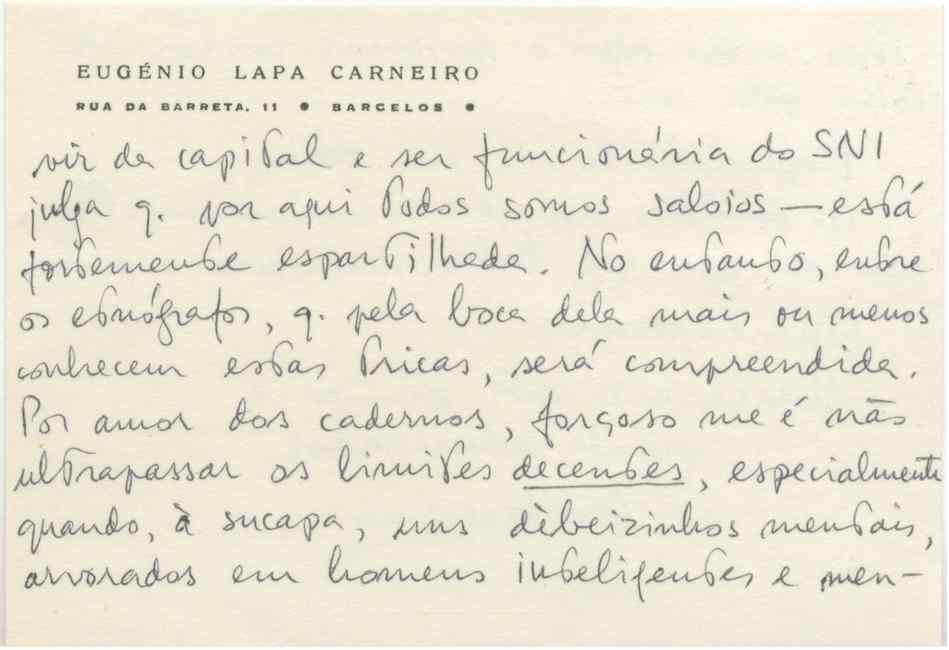 EUGÉNIO LAPA CARNEIRO
RUA DA BARRETA, 11 • BARCELOS •
vir da capital e ser funcionária do SNI
julga q. por aqui todos somos saloios — está
fortemente espartilhada. No entanto, entre
os etnógrafos, q. pela boca dela mais ou menos
conhecem estas tricas, será compreendida.
Por amor dos cadernos, forçoso me é não
ultrapassar os limites decentes, especialmente
quando, à sucapa, uns dèbeizinhos mentais,
arvorados em homens inteligentes e men-